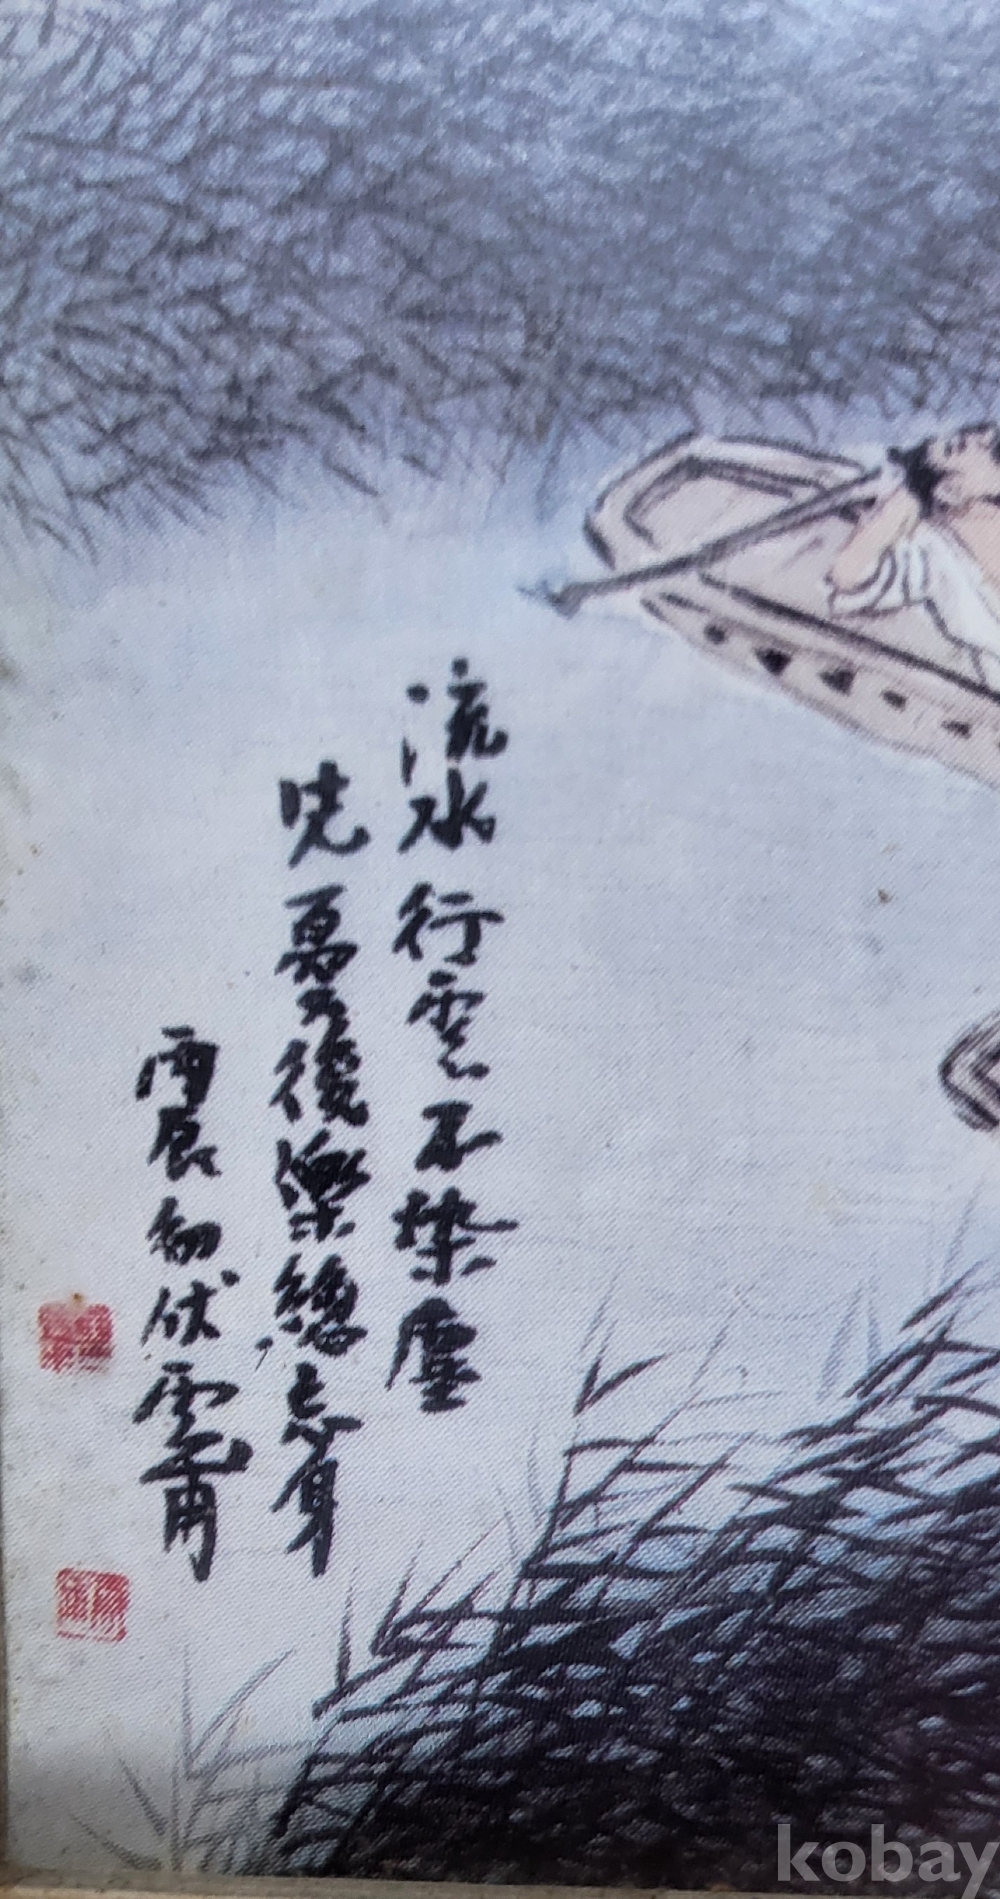 流水行雲不染塵
先憂後樂總忘身
丙辰初伏雲甫
kobay